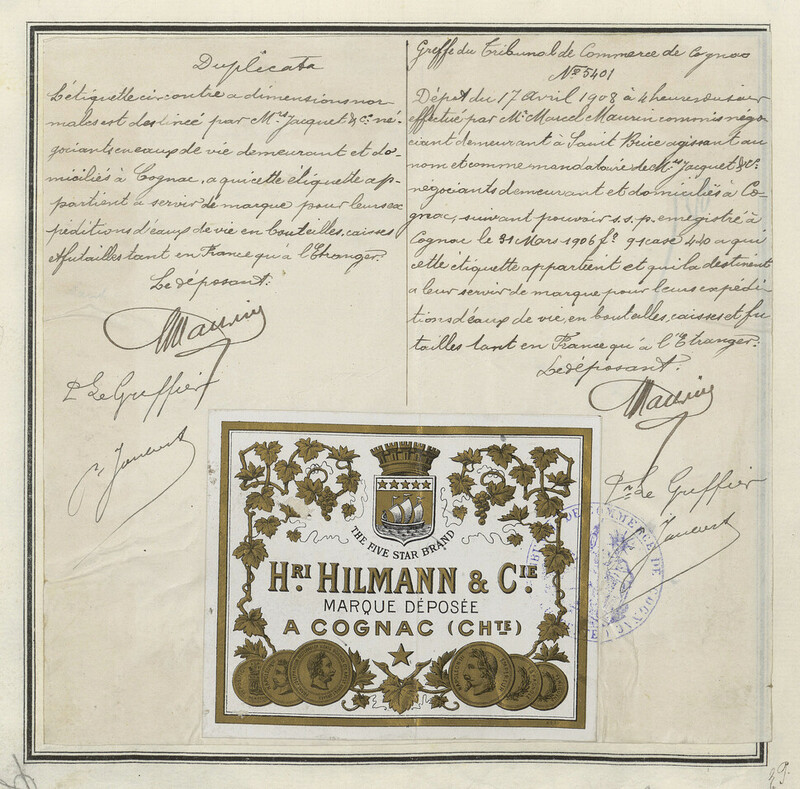 Duplicata
L'étiquette ci-contre a dimensions nor-
males est destinée par Mrs Jacquet & Cie né-
gociants en eaux de vie demeurant et do-
miciliés à Cognac, a qui cette étiquette ap-
partient à servir de marque pour leurs ex
péditions d'eaux de vie en bouteilles, caisses
& futailles tant en France qu'à l'Etranger.
Le déposant.
Maurin
Pr Le Greffier
Greffe du Tribunal de Commerce de Cognac
No 5401
Dépot du 17 Avril 1908 à 4 heures du soir
effectué par Mr Marcel Maurin commis négo-
ciant demeurant à Saint Brice agissant au
nom et comme mandataire de Mrs Jacquet & Cie
négociants demeurant et domiciliés à Co-
gnac, suivant pouvoir s.s.p. enregistré à
Cognac le 31 Mars 1906 fo 91 case 440 a qui
cette étiquette appartient et qui la destinent
a leur servir de marque pour leurs expédi-
tions d'eaux de vie, en bouteilles, caisses et fu
tailles tant en France qu'à l'Etranger.
Le déposant.
Maurin
Pr Le Greffier
THE FIVE STAR BRAND
HRI HILMANN & CIE
MARQUE DÉPOSÉE
A COGNAC (CHTE)
DE COMMERCE DE